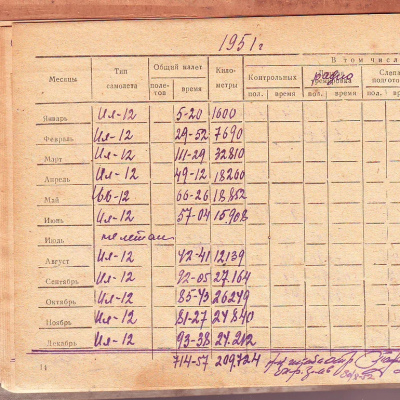 1951 г
Месяцы
Тип самолета
Общий налет
поле-тов
время
Кило-метры
В том числ
Контрольных
пол.
время
радио
тренировка
пол.
время
Слеп
подгото
пол.
Январь Ил-12 5-20 1600
Февраль Ил-12 29-52 7690
Март Ил-12 111-29 32810
Апрель Ил-12 49-12 18260
Май Ил-12 66-26 18852
Июнь Ил-12 57-04 15908
Июль не летал
Август Ил-12 42-41 12139
Сентябрь Ил-12 92-05 27.164
Октябрь Ил-12 85-43 26249
Ноябрь Ил-12 81-27 24840
Декабрь Ил-12 93-38 24212
14 714-57 209.724